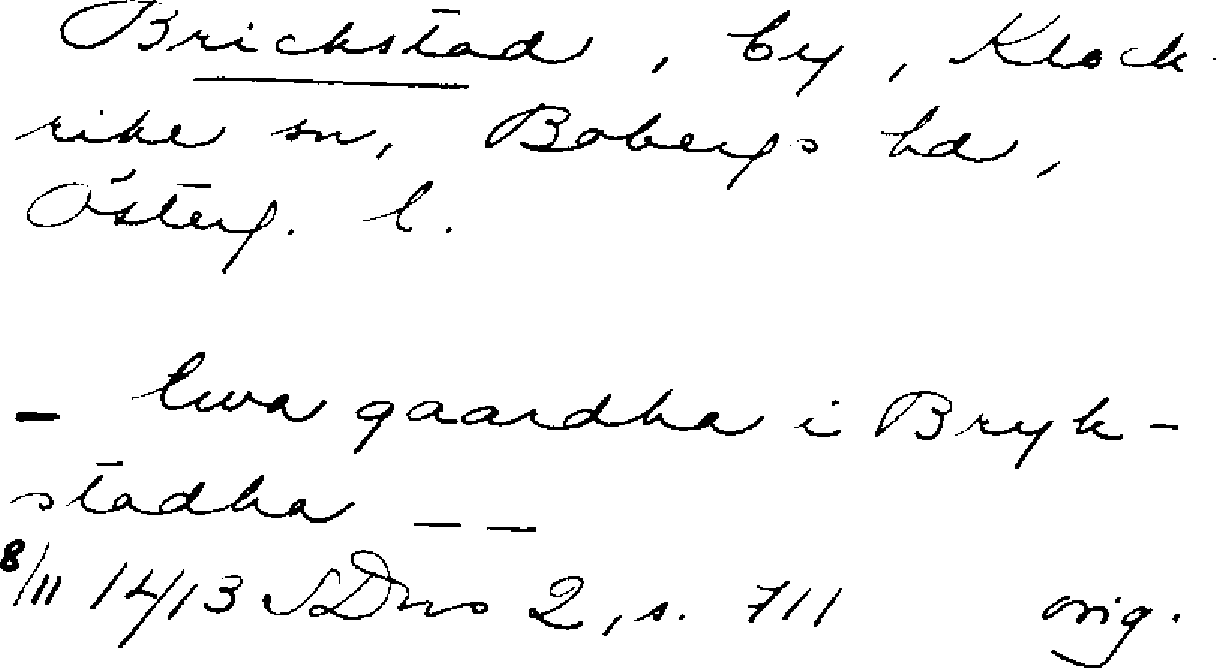 Brickstad, by, Klock-
rike sn, Bobergs hd,
Österg. l.
- twa gaardha i Bryk-
stadha - -
8/11 1413 SDns 2, s. 711 orig.